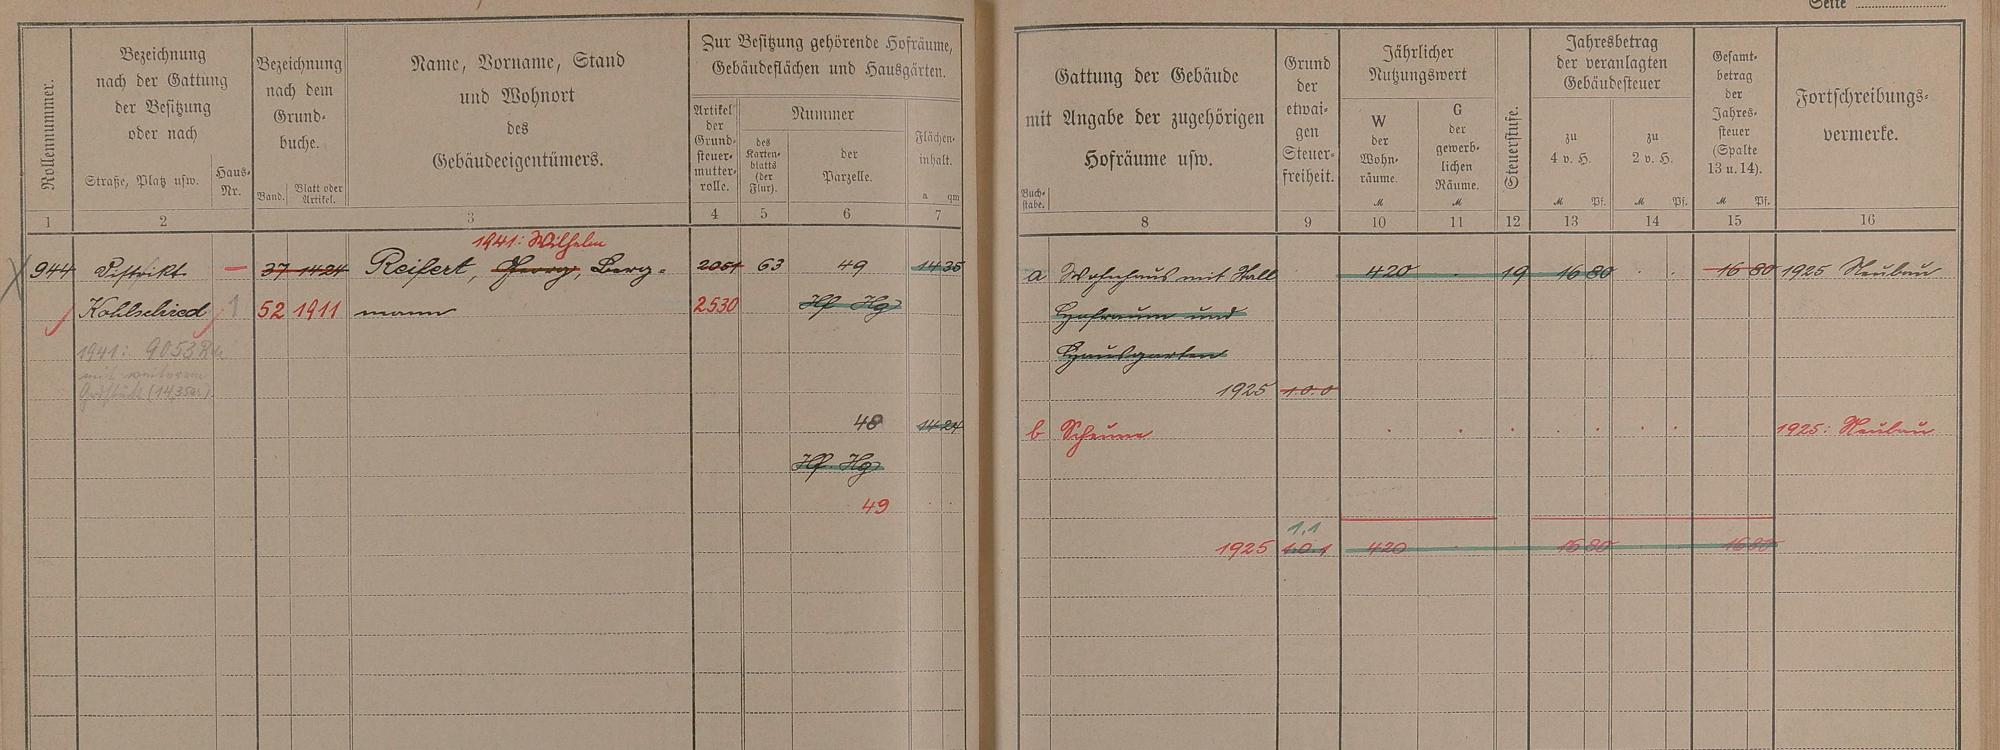 Seite
Rollennummer.
Bezeichnung
nach der Gattung
der Besitzung
oder nach
Straße, Platz usw.
Haus-
Nr.
Bezeichnung
nach dem
Grund-
buche.
Band.
Blatt oder
Artikel.
Name, Vorname, Stand
und Wohnort
des
Gebäudeeigentümers.
Zur Besitzung gehörende Hofräume,
Gebäudeflächen und Hausgärten.
Artikel
der
Grund-
steuer-
mutter-
rolle.
Nummer
des
Karten-
blatts
(der
Flur).
der
Parzelle.
Flächen-
inhalt.
a qm
Buch-
stabe.
Gattung der Gebäude
mit Angabe der zugehörigen
Hofräume usw.
Grund
der
etwai-
gen
Steuer-
freiheit.
Jährlicher
Nutzungswert
W
der
Wohn-
räume.
M
G
der
gewerb-
lichen
Räume.
M
Steuerstufe.
Jahresbetrag
der veranlagten
Gebäudesteuer
zu
4 v. H.
M Pf.
zu
2 v. H.
M Pf.
Gesamt-
betrag
der
Jahres-
steuer
(Spalte
13 u. 14).
M Pf.
Fortschreibungs-
vermerke.
1 2 3 4 5 6 7 8 9 10 11 12 13 14 15 16
1941: Wilhelm
944 Distrikt — 37 1424 Reifert, Georg, Berg- 2061 63 49 14 35 a Wohnhaus mit Stall 420 19 16 80 16 80 1925 Neubau
Kohlscheid 1 52 1911 mann 2530 Hf Hg Hofraum und
1941: 9053
mit weiterem
(14,35ar)
Hausgarten
1925 1.0.0
48 14 24 b Scheune 1925: Neubau
Hf. Hg
49
1.1
1925 1.0.1 420 16 80 16 80